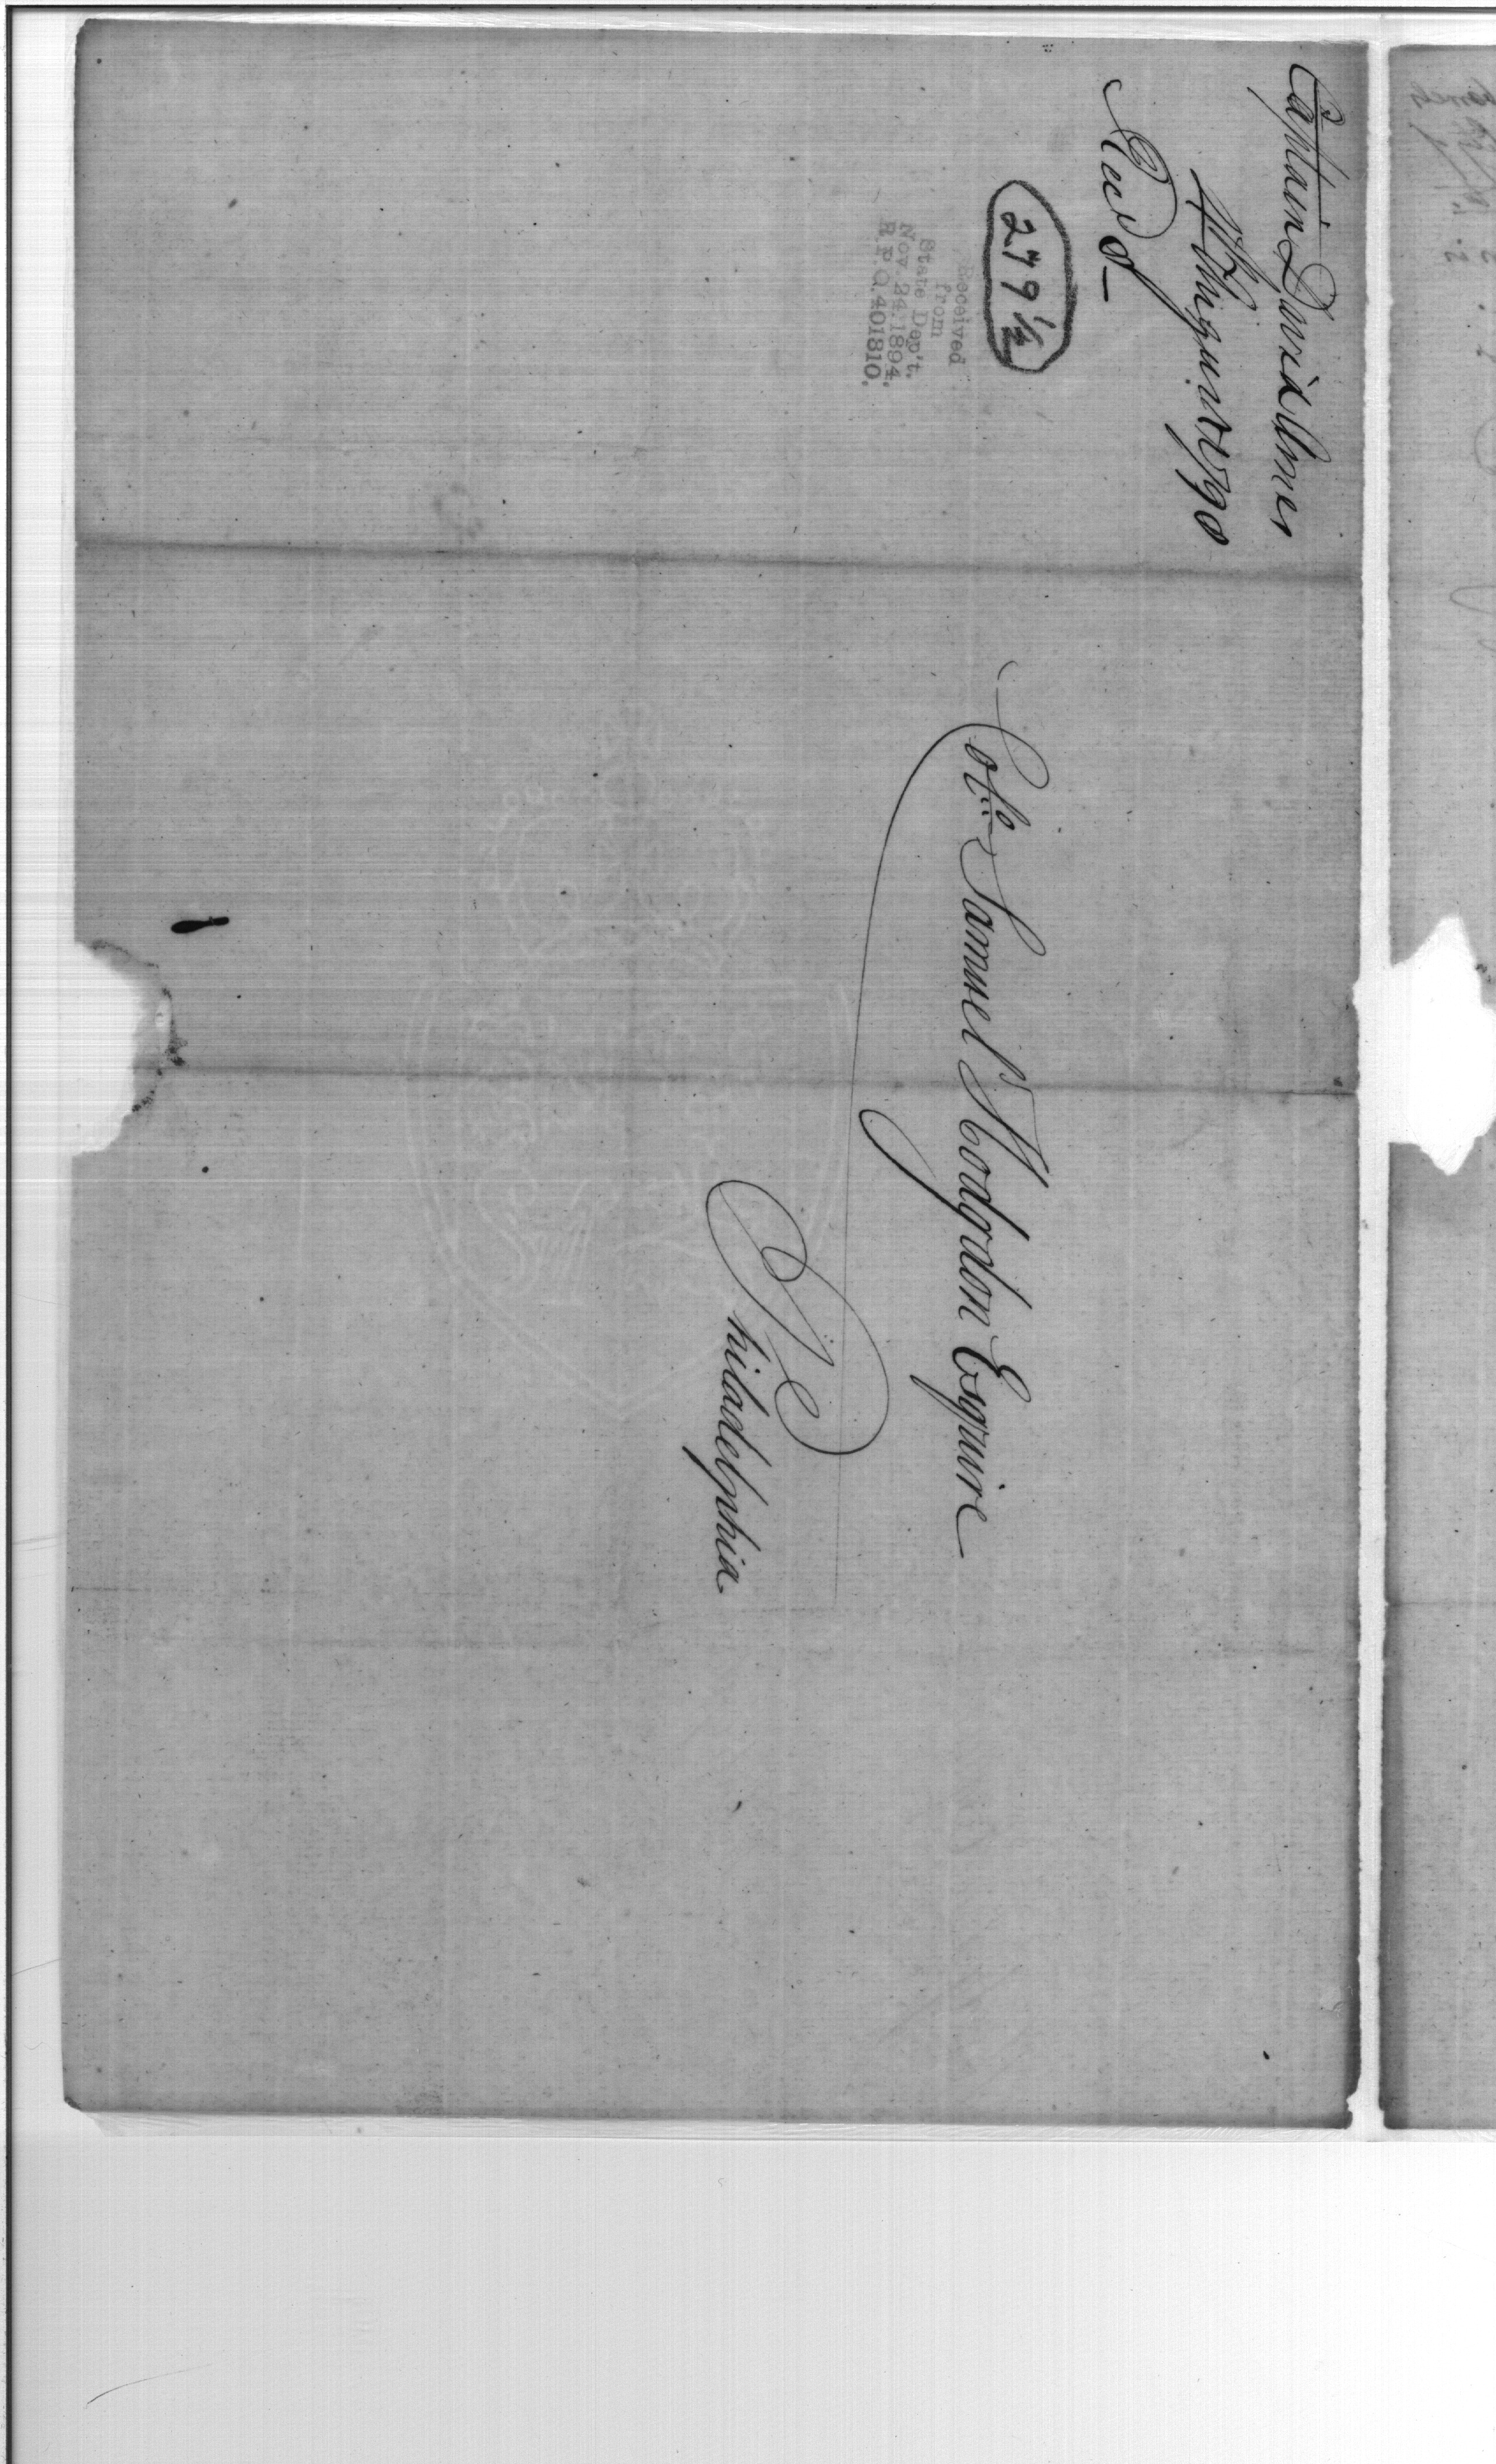 Captain David Ulmer
4th August 1790
Recd
279½
Received
from
State Dep't.
Nov. 24. 1894.
R.P.O. 401810.
Colo. Samuel Hodgdon Esquire
Philadelphia